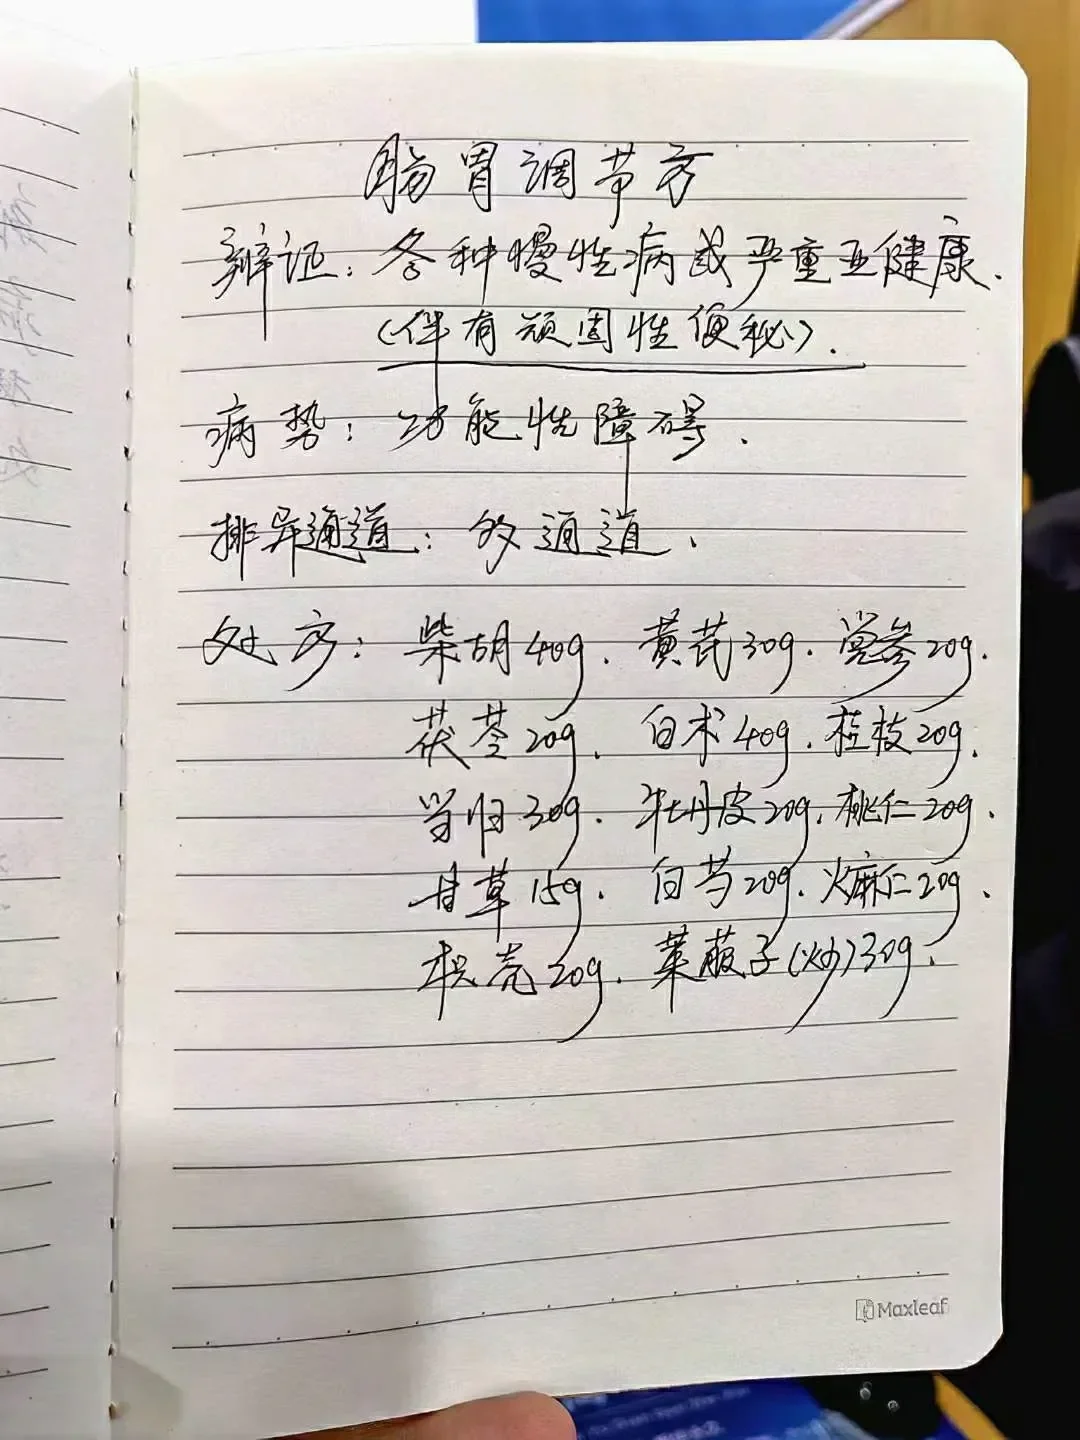 肠胃调节方
辩证：各种慢性病或严重亚健康.
(伴有顽固性便秘).
病势：功能性障碍.
排异通道：多通道.
处方：柴胡40g. 黄芪30g. 党参20g.
茯苓20g. 白术40g. 桂枝20g.
当归30g. 牡丹皮20g. 桃仁20g.
甘草15g. 白芍20g. 火麻仁20g.
枳壳20g. 莱菔子(炒)30g.
Maxleaf